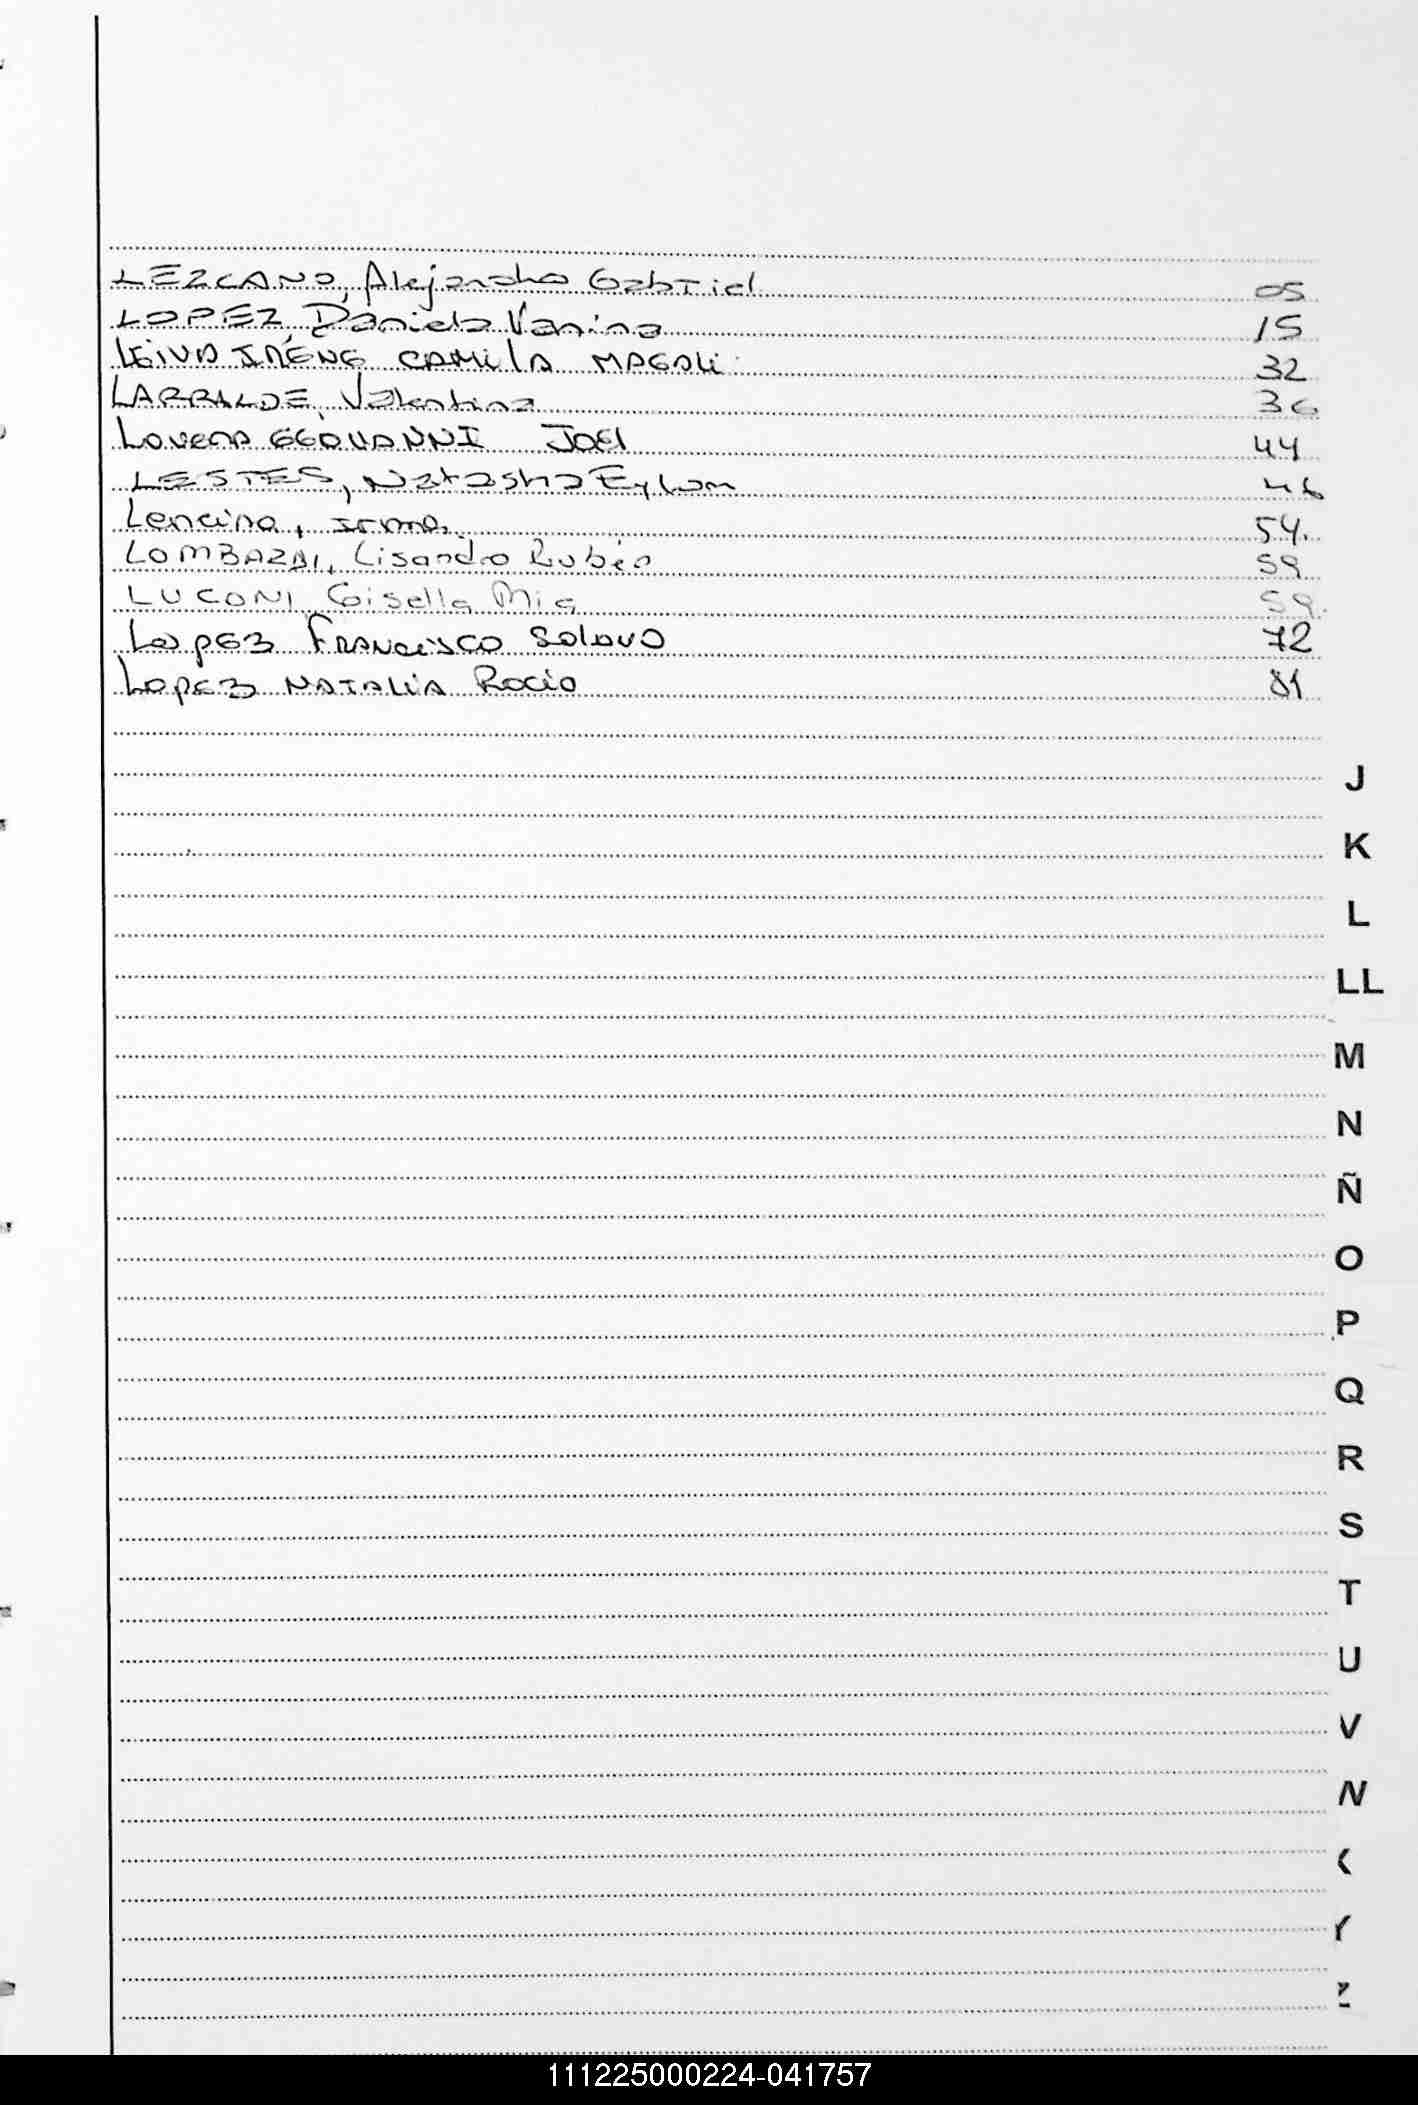 LEZCANO, Alejandro Gabriel 05
LOPEZ, Daniela Vanina 15
LEiVA IRENE CAMilA MAGALi 32
LARRALDE, Valentina 36
Lovera GEOVANNI JOEl 44
LESTES, Natasha Eylem 46
Lencina, Irma. 54.
LOMBARDI, Lisandro Rubén 59
LUCONI Gisella Mia 59.
LopEz FRANCisCO Solano 72
LopEz NATALiA Rocio 81
J
K
L
LL
M
N
Ñ
O
P
Q
R
S
T
U
V
Y
111225000224-041757